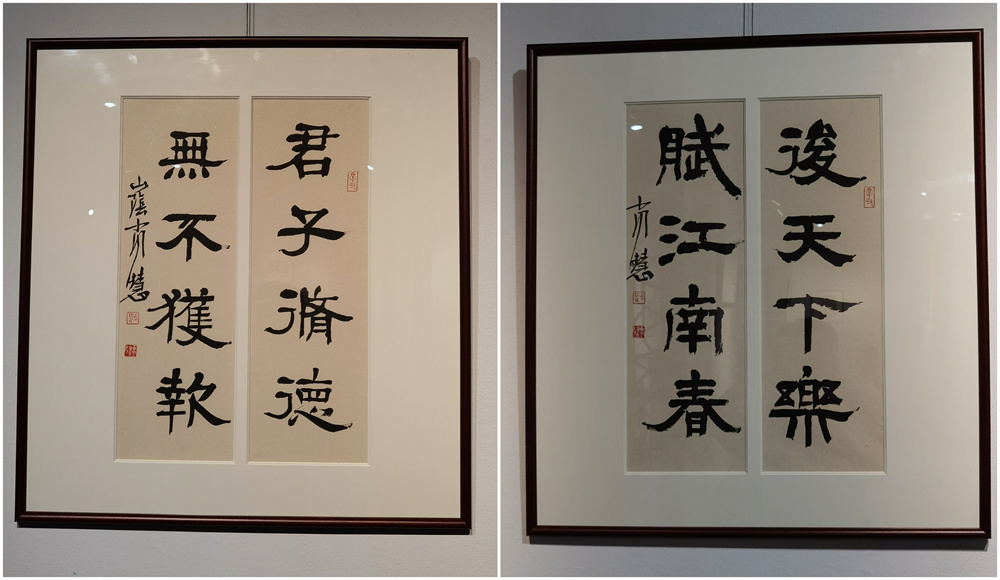 君子脩德
無不獲
山蔭肖慧
後天下樂
賦江南春
肖慧